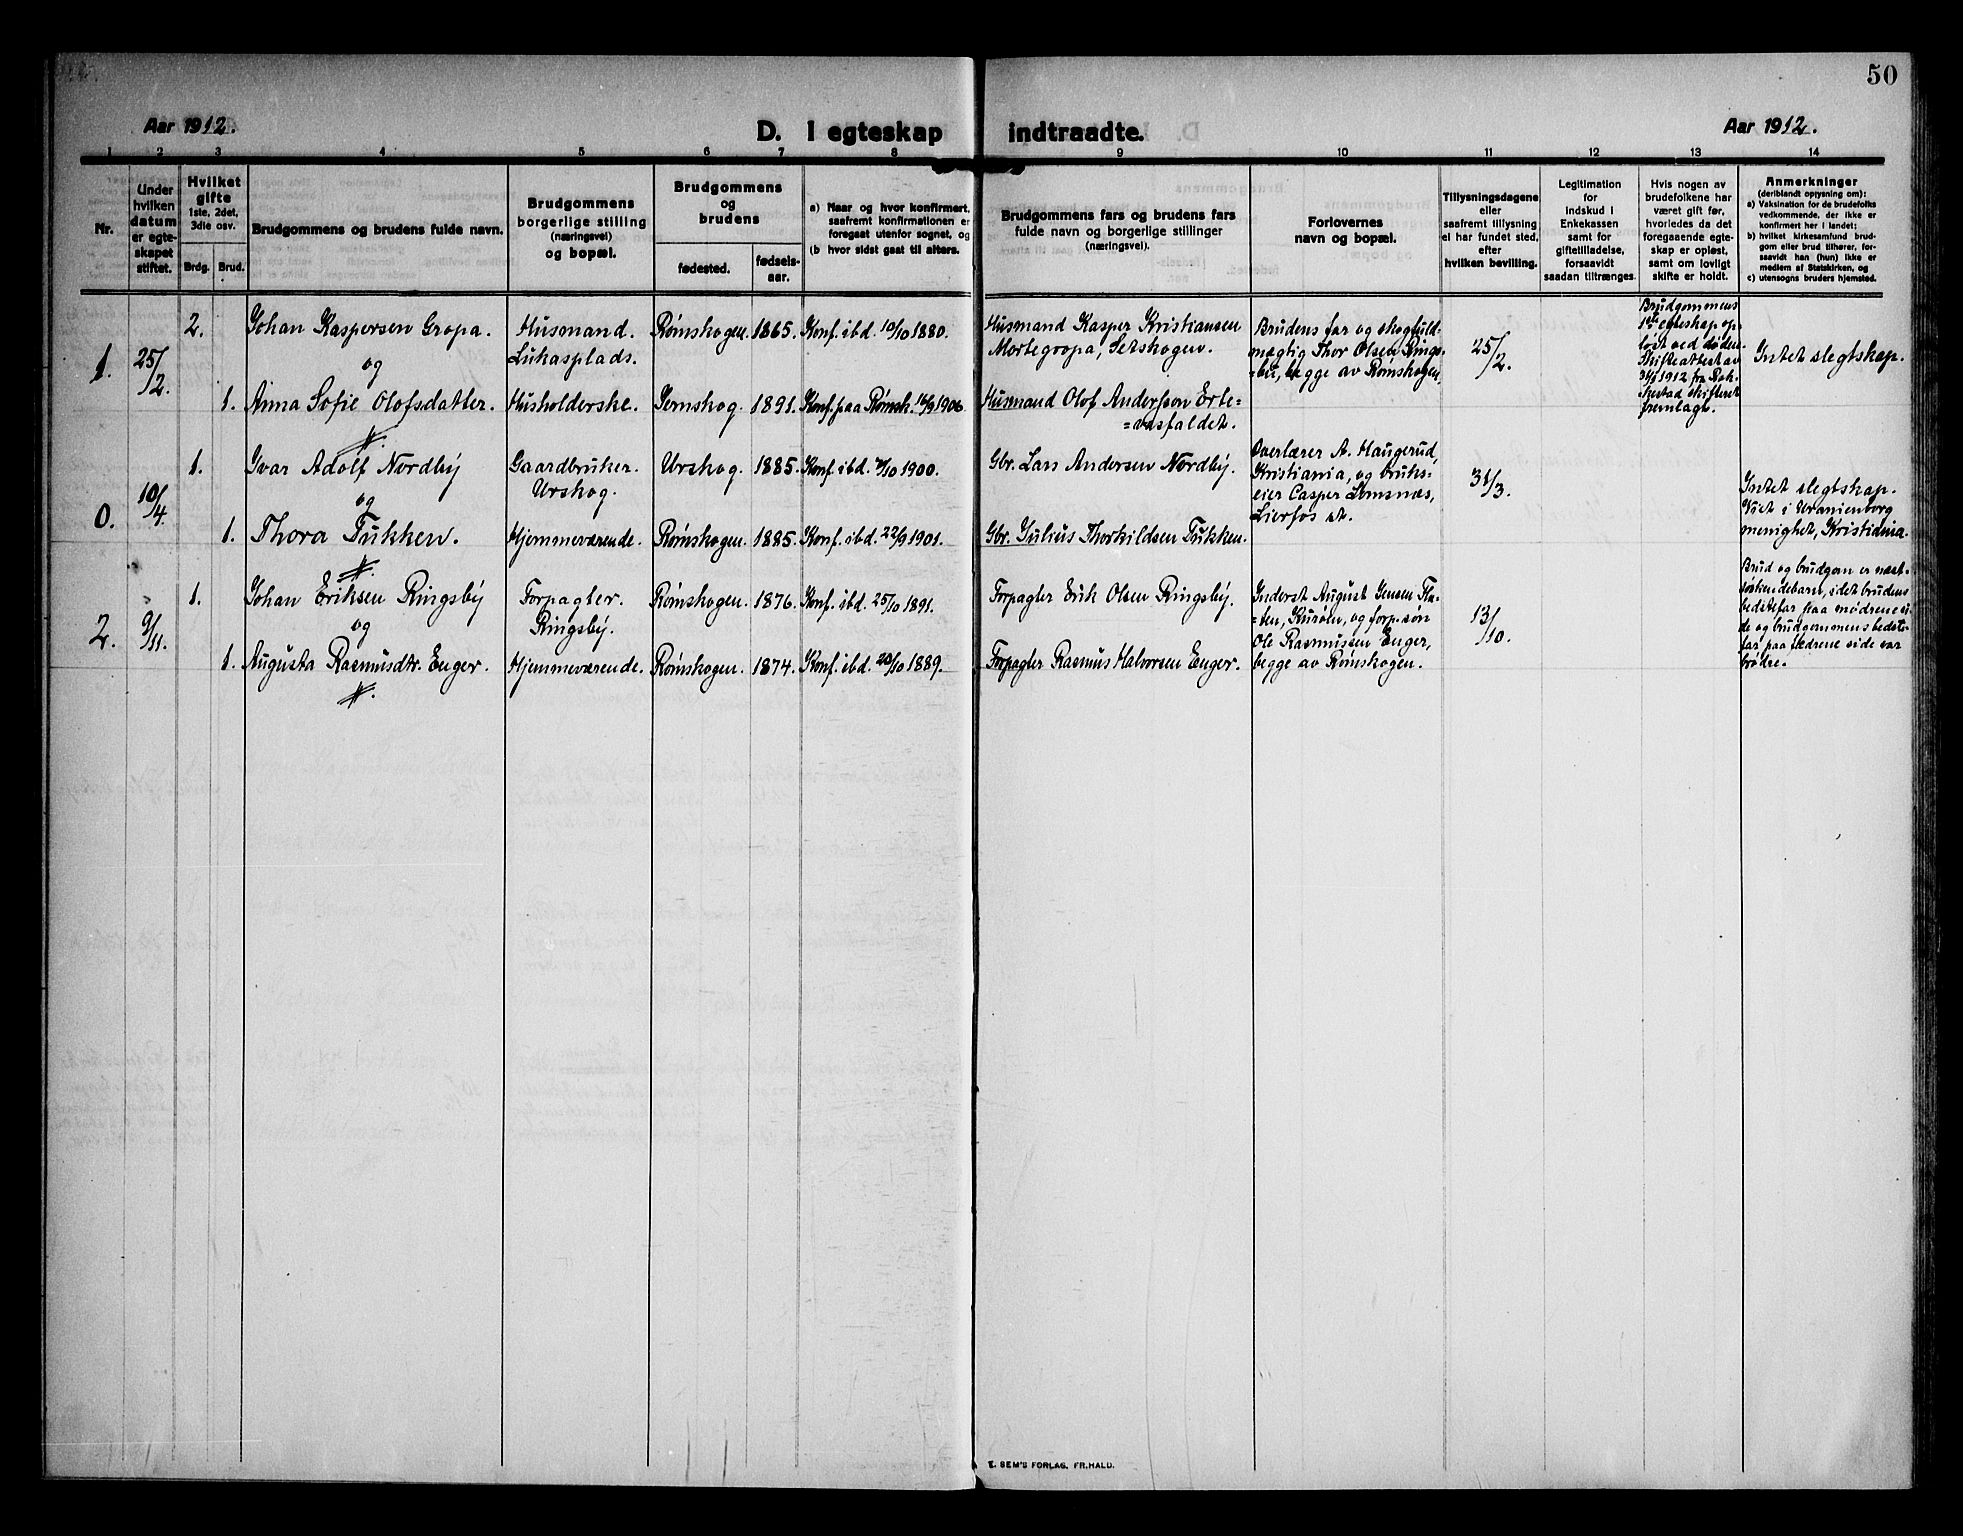 50
Aar 1912.
D. I egteskap indtraadte.
Aar 1912.
1 2 3 4 5 6 7 8 9 10 11 12 13 14
Nr.
Under
hvilken
datum
er egte-
skapet
stiftet.
Hvilket
gifte
1ste, 2det,
3die osv.
Brdg. Brud.
Brudgommens og brudens fulde navn.
Brudgommens
borgerlige stilling
(næringsvei)
og bopæl.
Brudgommens
og
brudens
fødested.
fødsels-
aar.
a) Naar og hvor konfirmert,
saafremt konfirmationen er
foregaat utenfor sognet, og
(b hvor sidst gaat til alters.
Brudgommens fars og brudens fars
fulde navn og borgerlige stillinger
(næringsvei).
Forlovernes
navn og bopæl.
Tillysningsdagene
eller
saafremt tillysning
ei har fundet sted,
efter
hvilken bevilling.
Legitimation
for
indskud i
Enkekassen
samt for
giftetilladelse,
forsaavidt
saadan tiltrænges.
Hvis nogen av
brudefolkene har
været gift før,
hvorledes da det
foregaaende egte-
skap er opløst,
samt om lovligt
skifte er holdt.
Anmerkninger
(deriblandt opysning om):
a) Vaksination for de brudefolks
vedkommende, der ikke er
konfirmert her i landet;
b) hvilket kirkesamfund brud-
gom eller brud tilhører, for-
saavidt han (hun) ikke er
medlem af Statskirken, og
c) utensogns bruders hjemsted.
1.
25/2
2.
Johan Kaspersen Gropa.
og
Husmand.
Lukasplads.
Rømskogen.
1865.
Konf. ibd. 10/10 1880.
Husmand Kasper Kristiansen
Mortegropa, Setskogen.
Brudens far og skogfuld-
mægtig Thor Olsen Rings-
=by, begge av Rømskogen.
25/2.
Brudgommens
1ste egteskap op-
løst ved døden.
Skifteattest av
1912 fra Rak-
kestad skifteret
fremlagt.
Intet slegtskap.
1.
Anna Sofie Olofsdatter.
Husholderske.
Jernskog.
1891.
Konf. paa Rømsk. 16/9 1906.
Husmand Olof Andersson Erte-
=vasfaldet.
0.
10/4.
1.
Ivar Adolf Nordby
og
Gaardbruker.
Urskog.
Urskog.
1885.
Konf. ibd. 7/10 1900.
Gbr. Lars Andersen Nordby.
Overlærer A. Haugerud,
Kristiania, og bruks-
eier Casper Lomsnæs,
Lierfos st.
31/3.
Intet slegtskap.
Viet i Uranienborg
menighet, Kristiania.
1.
Thora Tukken.
Hjemmeværende.
Rømskogen.
1885.
Konf. ibd. 22/9 1901.
Gbr. Julius Thorkildsen Tukken.
2.
9/11.
1.
Johan Eriksen Ringsby
og
Forpagter.
Ringsby.
Rømskogen.
1876.
Konf. ibd. 25/10 1891.
Forpagter Erik Olsen Ringsby.
Inderst August Jensen Fla-
=ten, Kurøen, og forp. søn
Ole Rasmussen Enger,
begge av Rømskogen.
13/10.
Brud og brudgom er næst-
søskendebarn, idet brudens
bedstefar paa mødrene si-
de og brudgommens bedste-
far paa fædrene side var
brødre.
1.
Augusta Rasmusdtr. Enger.
Hjemmeværende.
Rømskogen.
1874.
Konf. ibd. 20/10 1889.
Forpagter Rasmus Halvorsen Enger.
E. SEM'S FORLAG, FR.HALD.